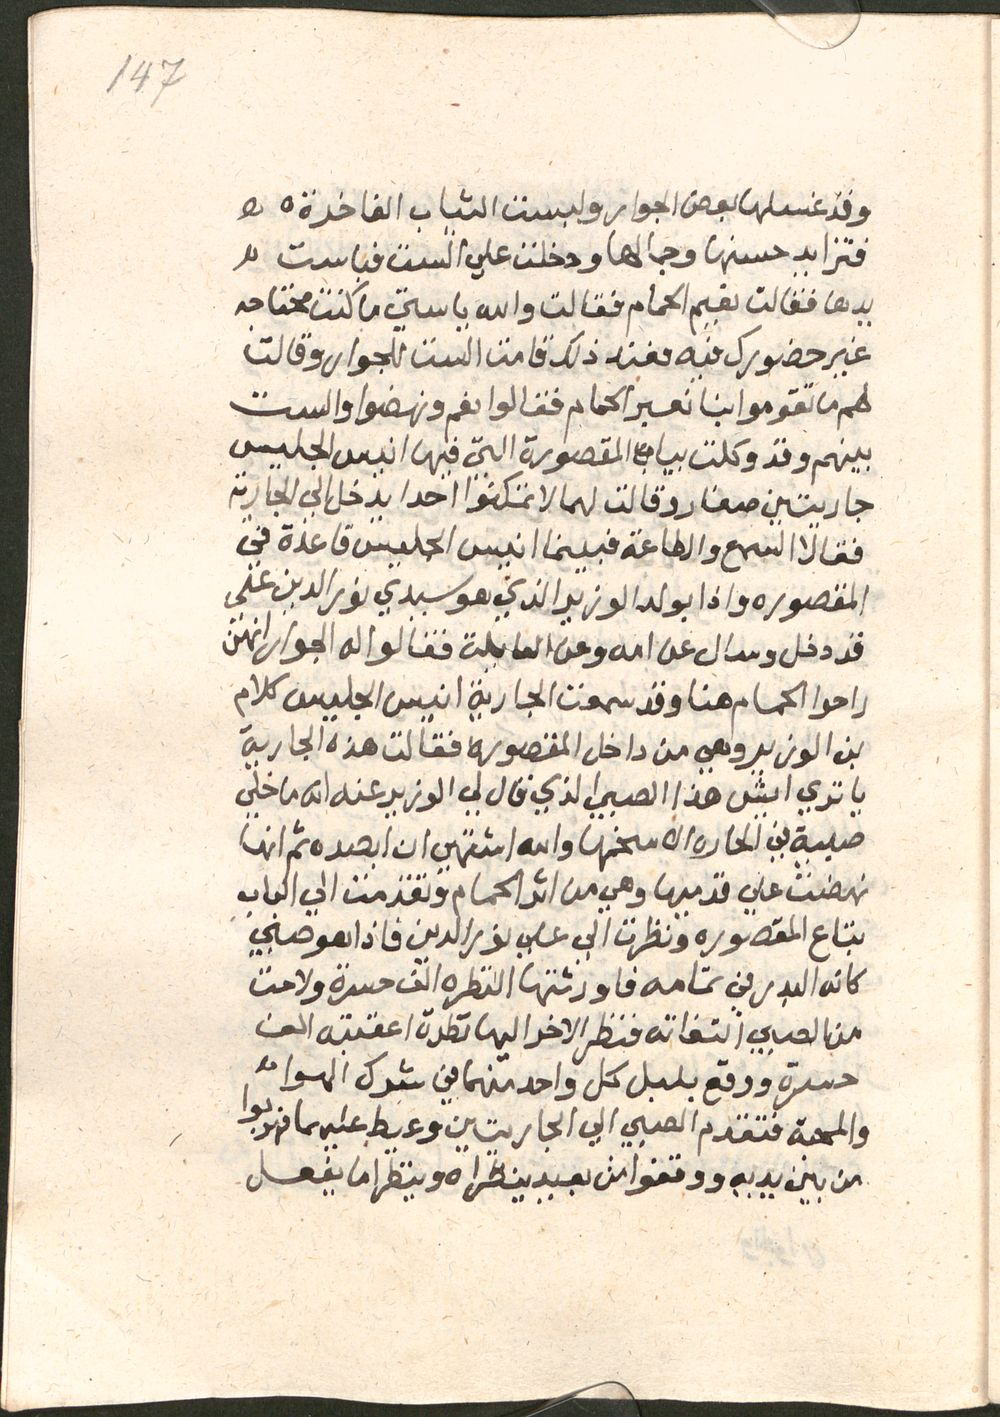 147
وقد غسلها بعض الجوار ولبست الثياب الفاخرة ٥
فتزايد حسنها وجمالها ودخلت علي الست فباست
يدها فقالت نعيم الحمام فقالت والله ياستي ما كنت محتاجه
غير حضورك فيه فعند ذلك قامت الست للجوار وقالت
لهم ما تقوموا بنا نعبر الحمام فقالوا نعم ونهضوا والست
بينهم وقد وكلت بباب المقصورة التي فيها انيس الجليس
جاريتين صغار وقالت لهما لا تمكنوا احدا يدخل الي الجارية
فقالا السمع والطاعة فبينما انيس الجليس قاعدة في
المقصوره واذا بولد الوزير الذي هو سيدي نور الدين علي
قد دخل وسال عن امه وعن العايلة فقالوا له الجوار انهن
راحوا الحمام هذا وقد سمعت الجارية انيس الجليس كلام
بن الوزير وهي من داخل المقصوره فقالت هذه الجارية
يا تري ايش هذا الصبي الذي قال لي الوزير عنه انه ما خلي
صبية في الحاره الا سخنها والله اشتهي ان ابصره ثم انها
نهضت علي قدميها وهي من اثر الحمام وتقدمت الي الباب
بتاع المقصوره ونظرت الي علي نور الدين فاذا هو صبي
كانه البدر في تمامه فاورثتها النظره الف حسرة ولاحت
من الصبي التفاته فنظر الاخر اليها نظرة اعقبته الف
حسرة ووقع بلبل كل واحد منهما في شرك الهوا
والمحبة فتقدم الصبي الي الجاريتين وعيط عليهما فهربوا
من بين يديه ووقفوا من بعيد ينظراه وينظرا ما يفعل